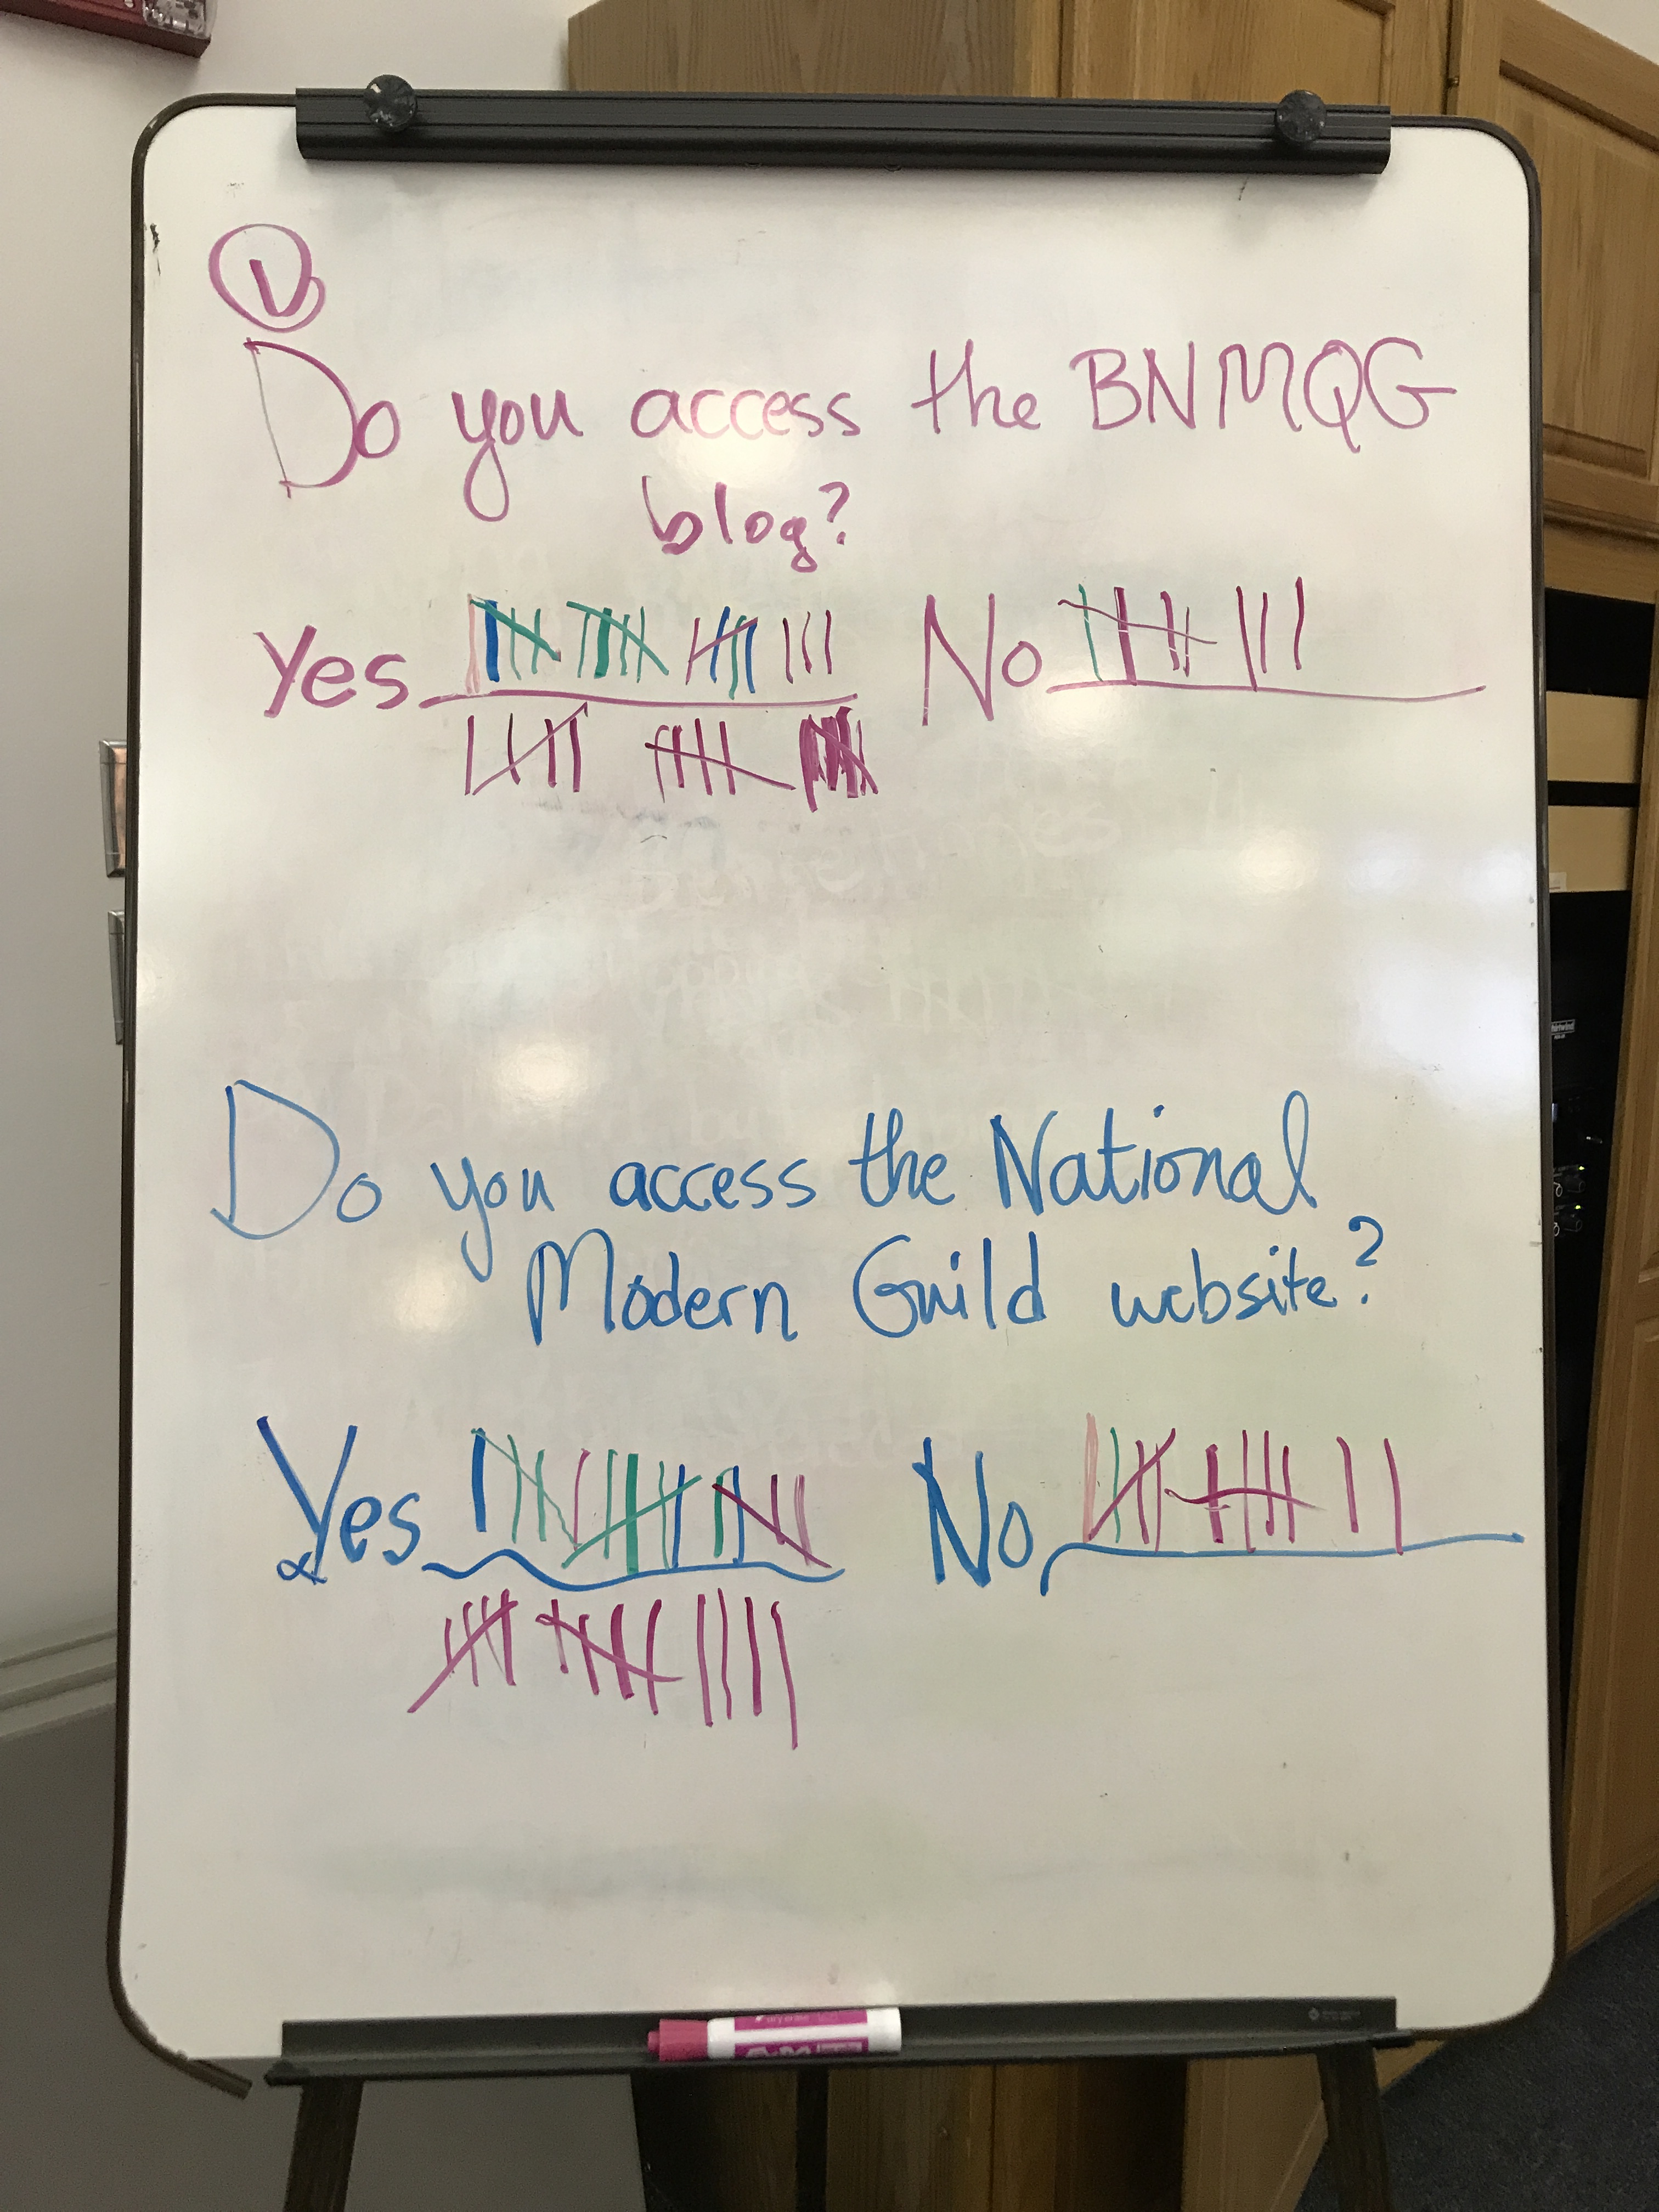 1
Do you access the BNMQG
blog?
Yes No
Do you access the National
Modern Guild website?
Yes No